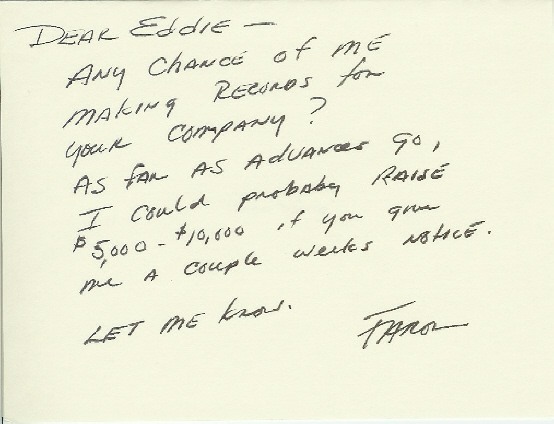 DEAR Eddie —
ANY CHANCE of ME
MAKING RECORDS for
your COMPANY?
AS fAR AS ADVANCES go,
I could probaby RAISE
$5,000 - $10,000 if you give
me A couple weeks NOTICE.
LET ME know.
FARON